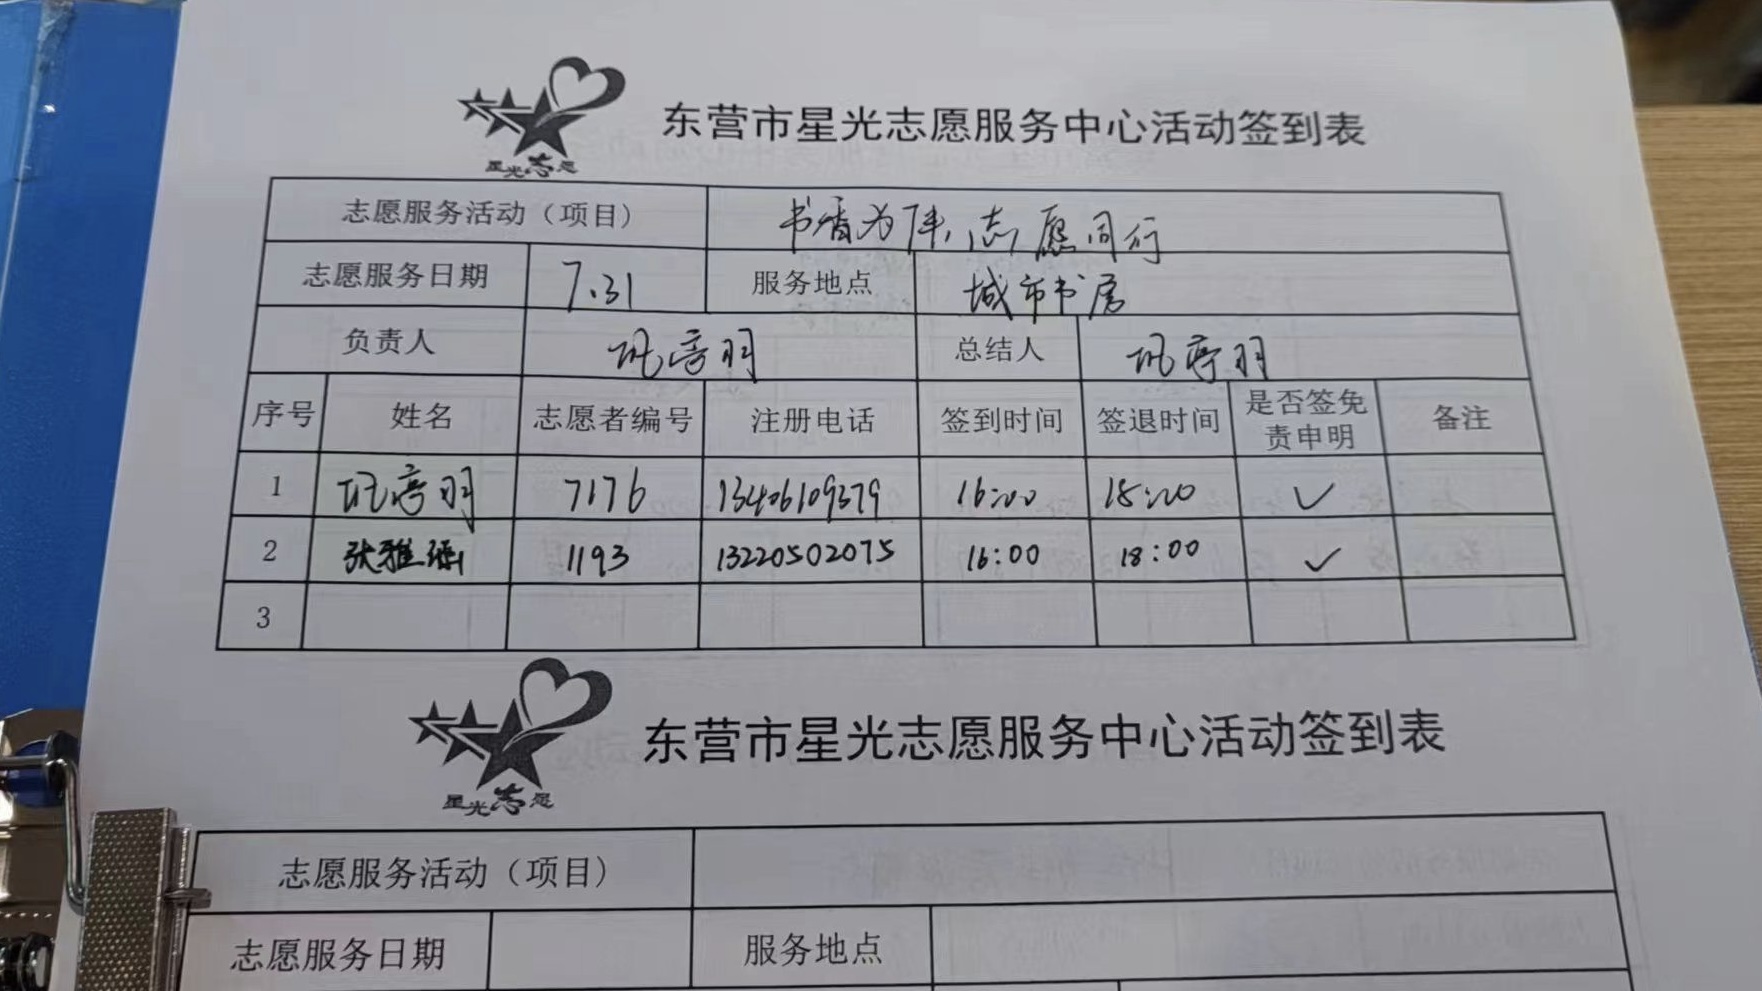 星光志愿
东营市星光志愿服务中心活动签到表
志愿服务活动（项目） 书香为伴,志愿同行
志愿服务日期 7.31 服务地点 城市书房
负责人 总结人
序号 姓名 志愿者编号 注册电话 签到时间 签退时间 是否签免责申明 备注
1 7176 13406109379 16:00 18:00 ✓
2 张雅 1193 13220502075 16:00 18:00 ✓
3
星光志愿
东营市星光志愿服务中心活动签到表
志愿服务活动（项目）
志愿服务日期 服务地点